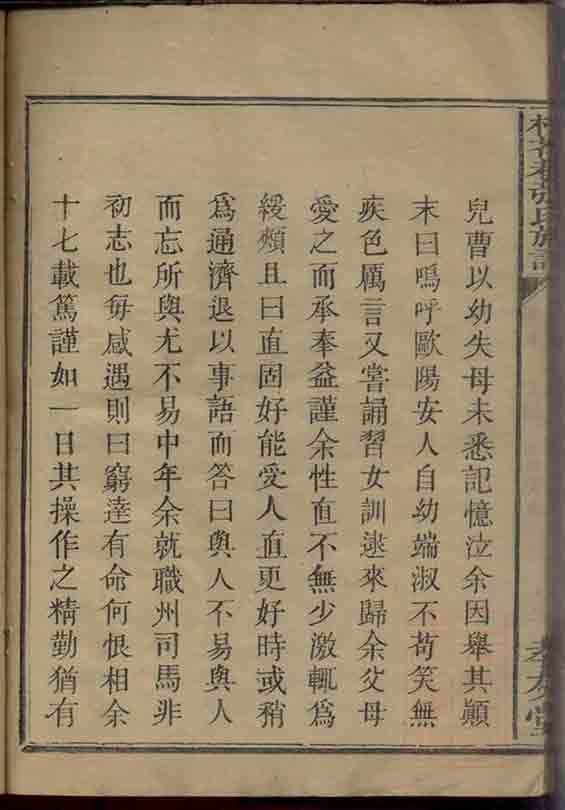 兒曹以幼失母未悉記憶泣余因舉其顚
末曰嗚呼歐陽安人自幼端淑不苟笑無
疾色厲言又嘗誦習女訓逮來歸余父母
愛之而承奉益謹余性直不無少激輒爲
緩頰且曰直固好能受人直更好時或稍
爲通濟退以事語而答曰與人不易與人
而忘所與尤不易中年余就職州司馬非
初志也每感遇則曰窮達有命何恨相余
十七載篤謹如一日其操作之精勤猶有